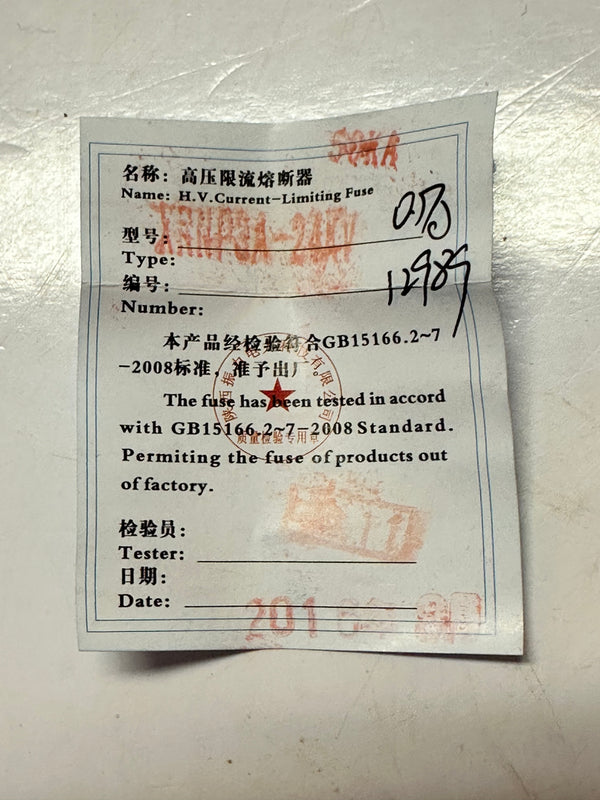 名称：高压限流熔断器
Name: H.V.Current-Limiting Fuse
型号：
Type:
编号：
12989
Number:
本产品经检验符合GB15166.2~7
-2008标准，准予出厂。
The fuse has been tested in accord
with GB15166.2~7-2008 Standard.
Permiting the fuse of products out
of factory.
质量检验专用章
检验员：
Tester:
日期：
Date:
201